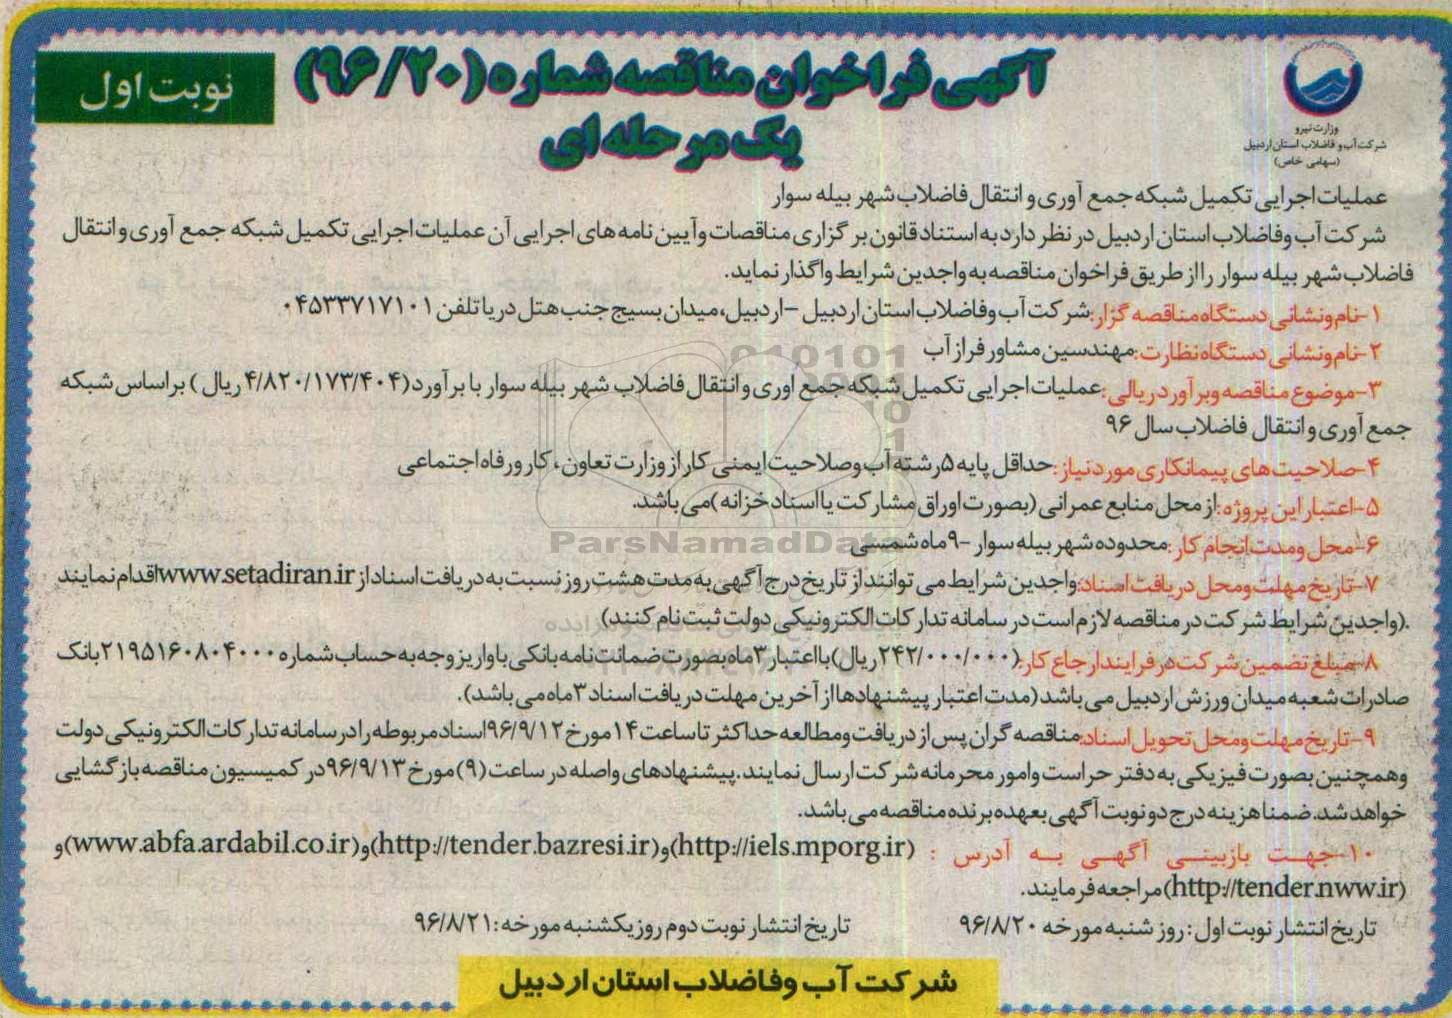 آگهی فراخوان مناقصه شماره (۹۶/۲۰)
یک مرحله ای
نوبت اول
وزارت نیرو
شرکت آب و فاضلاب استان اردبیل
(سهامی خاص)
عملیات اجرایی تکمیل شبکه جمع آوری و انتقال فاضلاب شهر بیله سوار
شرکت آب وفاضلاب استان اردبیل در نظر دارد به استناد قانون برگزاری مناقصات وآیین نامه های اجرایی آن عملیات اجرایی تکمیل شبکه جمع آوری وانتقال
فاضلاب شهر بیله سوار را از طریق فراخوان مناقصه به واجدین شرایط واگذار نماید.
۱-نام ونشانی دستگاه مناقصه گزار: شرکت آب وفاضلاب استان اردبیل –اردبیل، میدان بسیج جنب هتل دریا تلفن ۰۴۵۳۳۷۱۷۱۰۱
۲-نام ونشانی دستگاه نظارت: مهندسین مشاور فراز آب
۳-موضوع مناقصه وبرآورد ریالی: عملیات اجرایی تکمیل شبکه جمع آوری و انتقال فاضلاب شهر بیله سوار با برآورد (۴/۸۲۰/۱۷۳/۴۰۴ ریال ) براساس شبکه
جمع آوری و انتقال فاضلاب سال ۹۶
۴-صلاحیت های پیمانکاری مورد نیاز: حداقل پایه ۵ رشته آب وصلاحیت ایمنی کار از وزارت تعاون، کار و رفاه اجتماعی
۵-اعتبار این پروژه: از محل منابع عمرانی (بصورت اوراق مشارکت یا اسناد خزانه )می باشد.
۶-محل ومدت انجام کار: محدوده شهر بیله سوار -۹ماه شمسی
۷-تاریخ مهلت ومحل دریافت اسناد: واجدین شرایط می توانند از تاریخ درج آگهی به مدت هشت روز نسبت به دریافت اسناد از www.setadiran.ir اقدام نمایند
.(واجدین شرایط شرکت در مناقصه لازم است در سامانه تدارکات الکترونیکی دولت ثبت نام کنند)
۸-مبلغ تضمین شرکت در فرایند ارجاع کار: (۲۴۲/۰۰۰/۰۰۰ریال) با اعتبار ۳ماه بصورت ضمانت نامه بانکی یا واریز وجه به حساب شماره ۲۱۹۵۱۶۰۸۰۴۰۰۰ بانک
صادرات شعبه میدان ورزش اردبیل می باشد (مدت اعتبار پیشنهادها از آخرین مهلت دریافت اسناد ۳ماه می باشد).
۹-تاریخ مهلت ومحل تحویل اسناد: مناقصه گران پس از دریافت ومطالعه حداکثر تا ساعت ۱۴ مورخ ۹۶/۹/۱۲ اسناد مربوطه را در سامانه تدارکات الکترونیکی دولت
وهمچنین بصورت فیزیکی به دفتر حراست وامور محرمانه شرکت ارسال نمایند. پیشنهادهای واصله در ساعت (۹) مورخ ۹۶/۹/۱۳ در کمیسیون مناقصه بازگشایی
خواهد شد. ضمنا هزینه درج دو نوبت آگهی بعهده برنده مناقصه می باشد.
۱۰-جهت بازبینی آگهی به آدرس : (http://iels.mporg.ir)و(http://tender.bazresi.ir)و(www.abfa.ardabil.co.ir)و
(http://tender.nww.ir) مراجعه فرمایند.
تاریخ انتشار نوبت اول: روز شنبه مورخه ۹۶/۸/۲۰
تاریخ انتشار نوبت دوم روز یکشنبه مورخه: ۹۶/۸/۲۱
شرکت آب وفاضلاب استان اردبیل
ParsNamadData